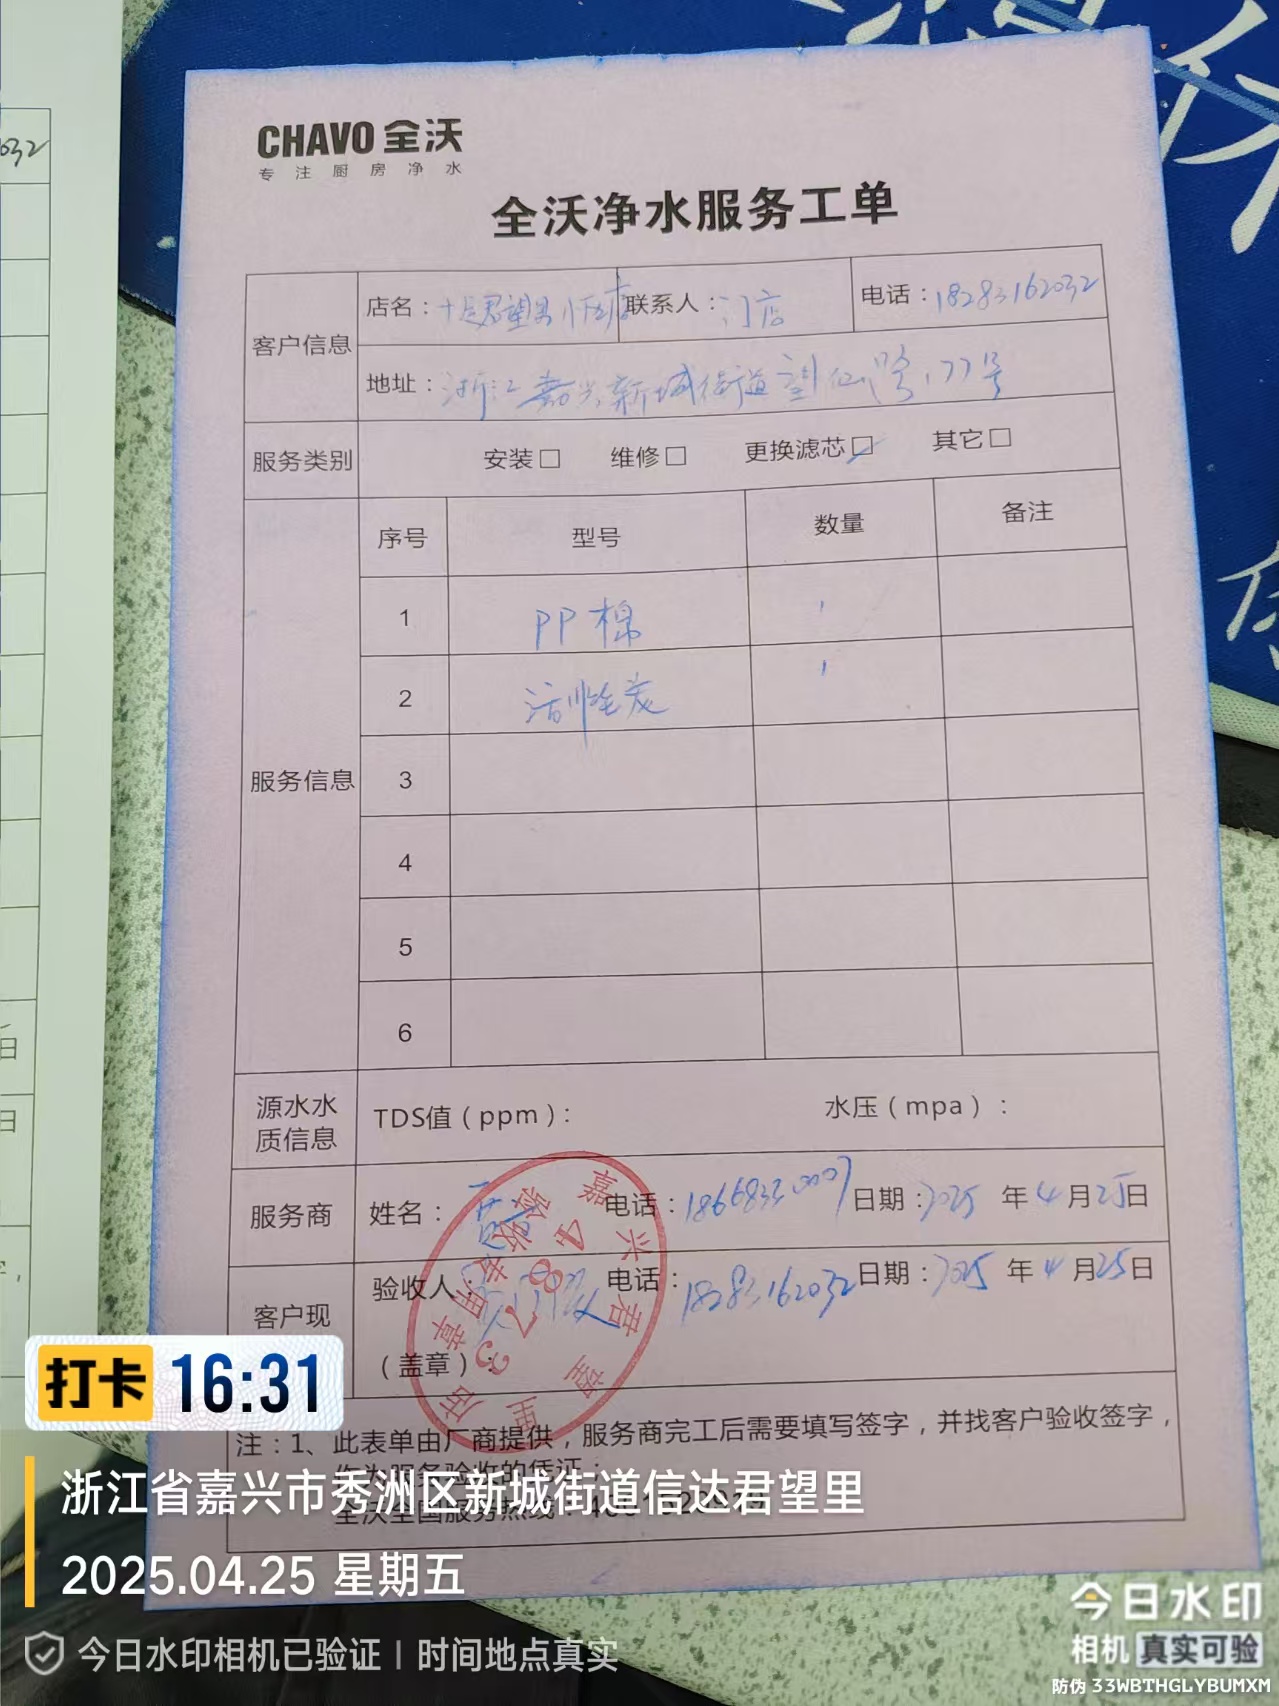 032
CHAVO 全沃
专注厨房净水
全沃净水服务工单
客户信息
店名：君望里
联系人：门店
电话：18283162032
地址：浙江嘉兴新城街道望仙路177号
服务类别
安装□ 维修□ 更换滤芯☑ 其它□
服务信息
序号 型号 数量 备注
1 PP棉 1
2 活性炭 1
3
4
5
6
源水水质信息
TDS值（ppm）： 水压（mpa）：
服务商
姓名： 电话： 日期：2025 年 4 月 25 日
客户现
验收人： 电话：18283162032 日期：2025 年 4 月 25 日
（盖章）：
嘉兴君望里店
48723
验收专用章
注：1、此表单由厂商提供，服务商完工后需要填写签字，并找客户验收签字，
作为服务验收的凭证；
全沃全国服务热线：
日
日
打卡 16:31
浙江省嘉兴市秀洲区新城街道信达君望里
2025.04.25 星期五
今日水印相机已验证 | 时间地点真实
今日水印
相机 真实可验
防伪 33WBTHGLYBUMXM